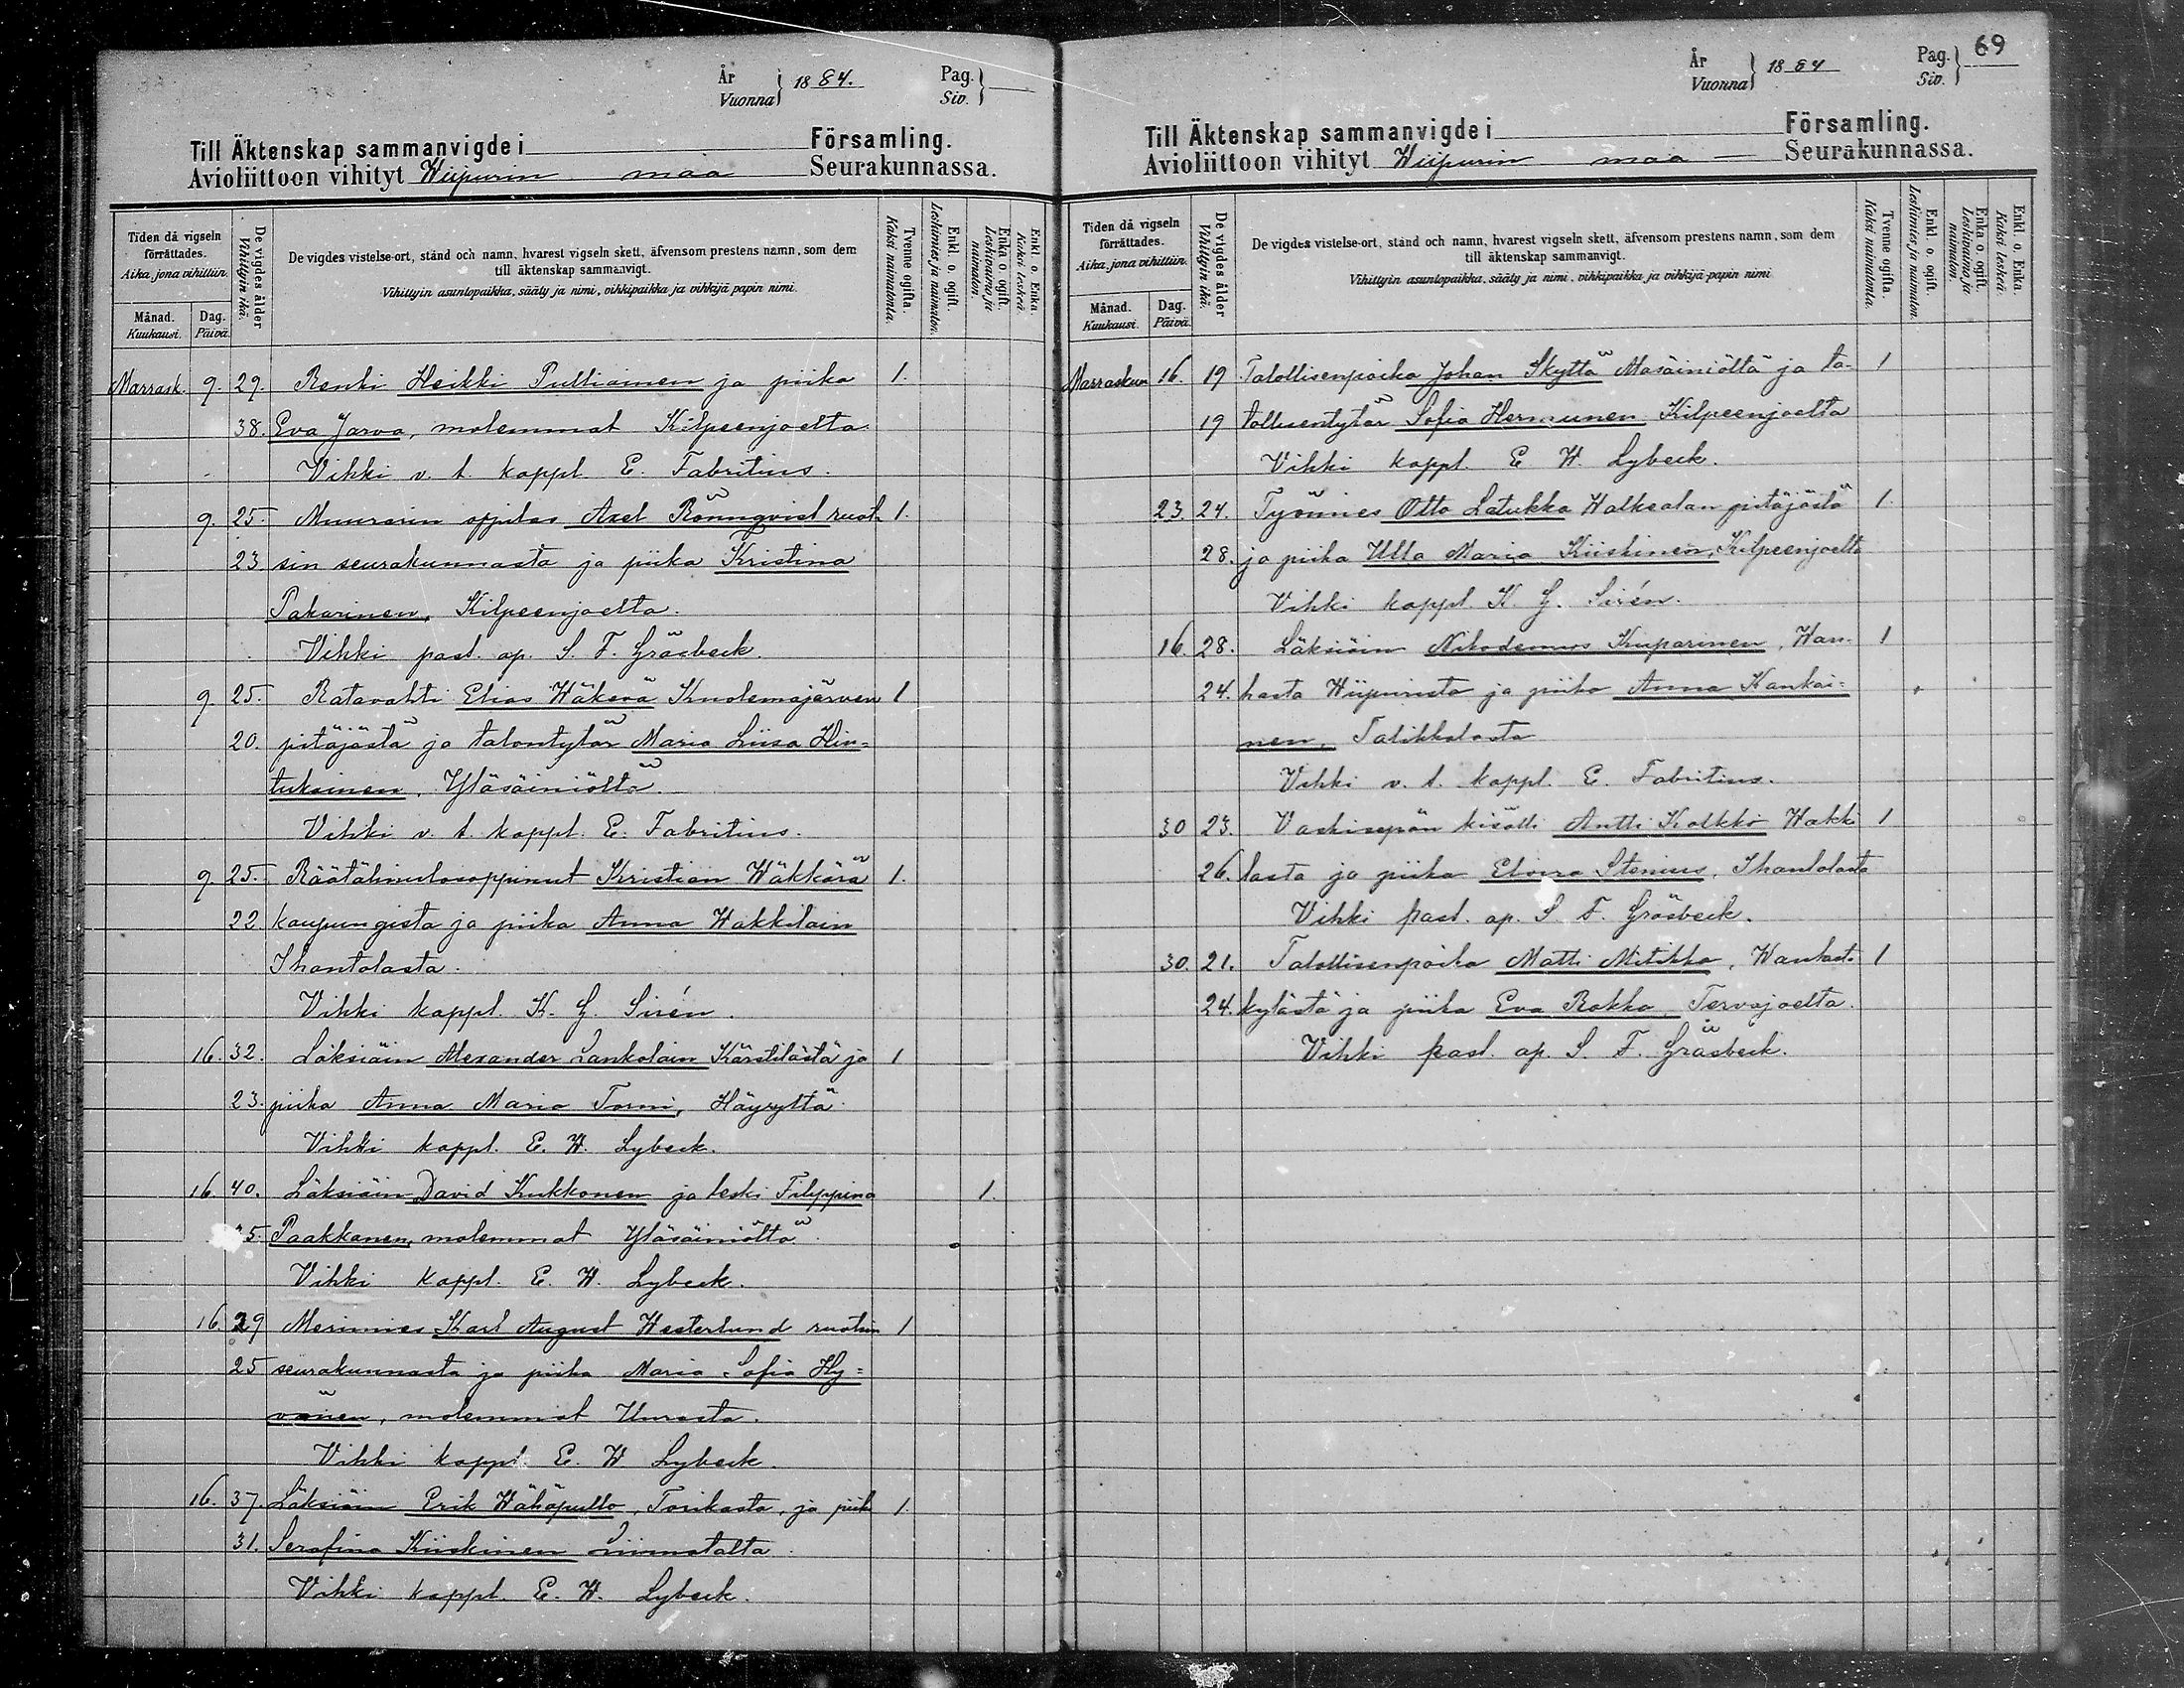 År
Vuonna } 1884. Pag.
Siv. }
Till Äktenskap sammanvigde i Församling.
Avioliittoon vihityt Wiipurin maa Seurakunnassa.
Tiden då vigseln förrättades.
Aika, jona vihittiin.
Månad.
Kuukausi.
Dag.
Päivä.
De vigdes ålder
Vihittyin ikä.
De vigdes vistelse-ort, stånd och namn, hvarest vigseln skett, äfvensom prestens namn, som dem
till äktenskap sammanvigt.
Vihittyin asuntopaikka, sääty ja nimi, vihkipaikka ja vihkijä papin nimi.
Tvenne ogifta.
Kaksi naimatonta.
Enkl. o. ogift.
Leskimies ja naimaton.
Enka o. ogift.
Leskivaimo ja naimaton.
Enkl. o. Enka.
Kaksi leskeä.
Marrask. 9. 29. Renki Heikki Pulliainen ja piika 1.
38. Eva Jarva, molemmat Kilpeenjoelta.
Vihki v. t. kappl. E. Fabritius.
9. 25. Muurarin oppilas Axel Rönnqvist ruot- 1.
23 sin seurakunnasta ja piika Kristina
Pakarinen, Kilpeenjoelta.
Vihki past. ap. S. F. Gräsbeck.
9. 25. Ratavahti Elias Wäkevä Kuolemajärven 1
20. pitäjästä ja talontytär Maria Liisa Hin=
tukainen, Yläsäiniöltä.
Vihki v. t. kappl. E. Fabritius.
9. 25. Räätälinulosoppinut Kristian Wäkkärä 1.
22 kaupungista ja piika Anna Wakkilain
Ihantolasta.
Vihki kappl. K. G. Sirén.
16. 32. Läksiäin Alexander Lankolain Kärstilästä ja 1
23. piika Anna Maria Tormi, Häyryltä.
Vihki kappl. E. W. Lybeck.
16. 40. Läksiäin David Kukkonen ja leski Filippina 1.
5. Paakkanen, molemmat Yläsäiniöltä.
Vihki kappl. E. W. Lybeck.
16. 29 Merimies Karl August Westerlund ruotsin 1
25 seurakunnasta ja piika Maria Sofia Hy=
vönen, molemmat Uurasta.
Vihki kappl. E. W. Lybeck.
16. 37. Läksiäin Erik Wähäpullo, Torikasta, ja piik 1.
31. Serafina Kiiskinen Liimatalta.
Vihki kappl. E. W. Lybeck.
69
År
Vuonna } 1884 Pag.
Siv. }
Till Äktenskap sammanvigde i Församling.
Avioliittoon vihityt Wiipurin maa Seurakunnassa.
Tiden då vigseln förrättades.
Aika, jona vihittiin.
Månad.
Kuukausi.
Dag.
Päivä.
De vigdes ålder
Vihittyin ikä.
De vigdes vistelse-ort, stånd och namn, hvarest vigseln skett, äfvensom prestens namn, som dem
till äktenskap sammanvigt.
Vihittyin asuntopaikka, sääty ja nimi, vihkipaikka ja vihkijä papin nimi
Tvenne ogifta.
Kaksi naimatonta.
Enkl. o. ogift.
Leskimies ja naimaton.
Enka o. ogift.
Leskivaimo ja naimaton.
Enkl. o. Enka.
Kaksi leskeä.
Marraskun 16. 19 Talollisenpoika Johan Skyttä Alasäiniöltä ja ta- 1
19 lollisentytär Sofia Hermunen Kilpeenjoelta
Vihki kappl. E. W. Lybeck.
23. 24. Työmies Otto Latukka Walkealan pitäjästä 1.
28. ja piika Ulla Maria Kiiskinen, Kilpeenjoelta
Vihki kappl. K. G. Sirén.
16. 28. Läksiäin Nikodemus Kuparinen, Wan- 1
24. hasta Wiipurista ja piika Anna Kankai=
nen, Talikkalasta
Vihki v. t. kappl. E. Fabritius.
30 23. Vaskisepän kisälli Antti Kolkki Wakki 1
26. lasta ja piika Elvira Stenius, Ihantolasta
Vihki past. ap. S. F. Gräsbeck.
30. 21. Talollisenpoika Matti Mitikka, Wanhast. 1
24. kylästä ja piika Eva Rokka, Tervajoelta.
Vihki past. ap. S. F. Gräsbeck.